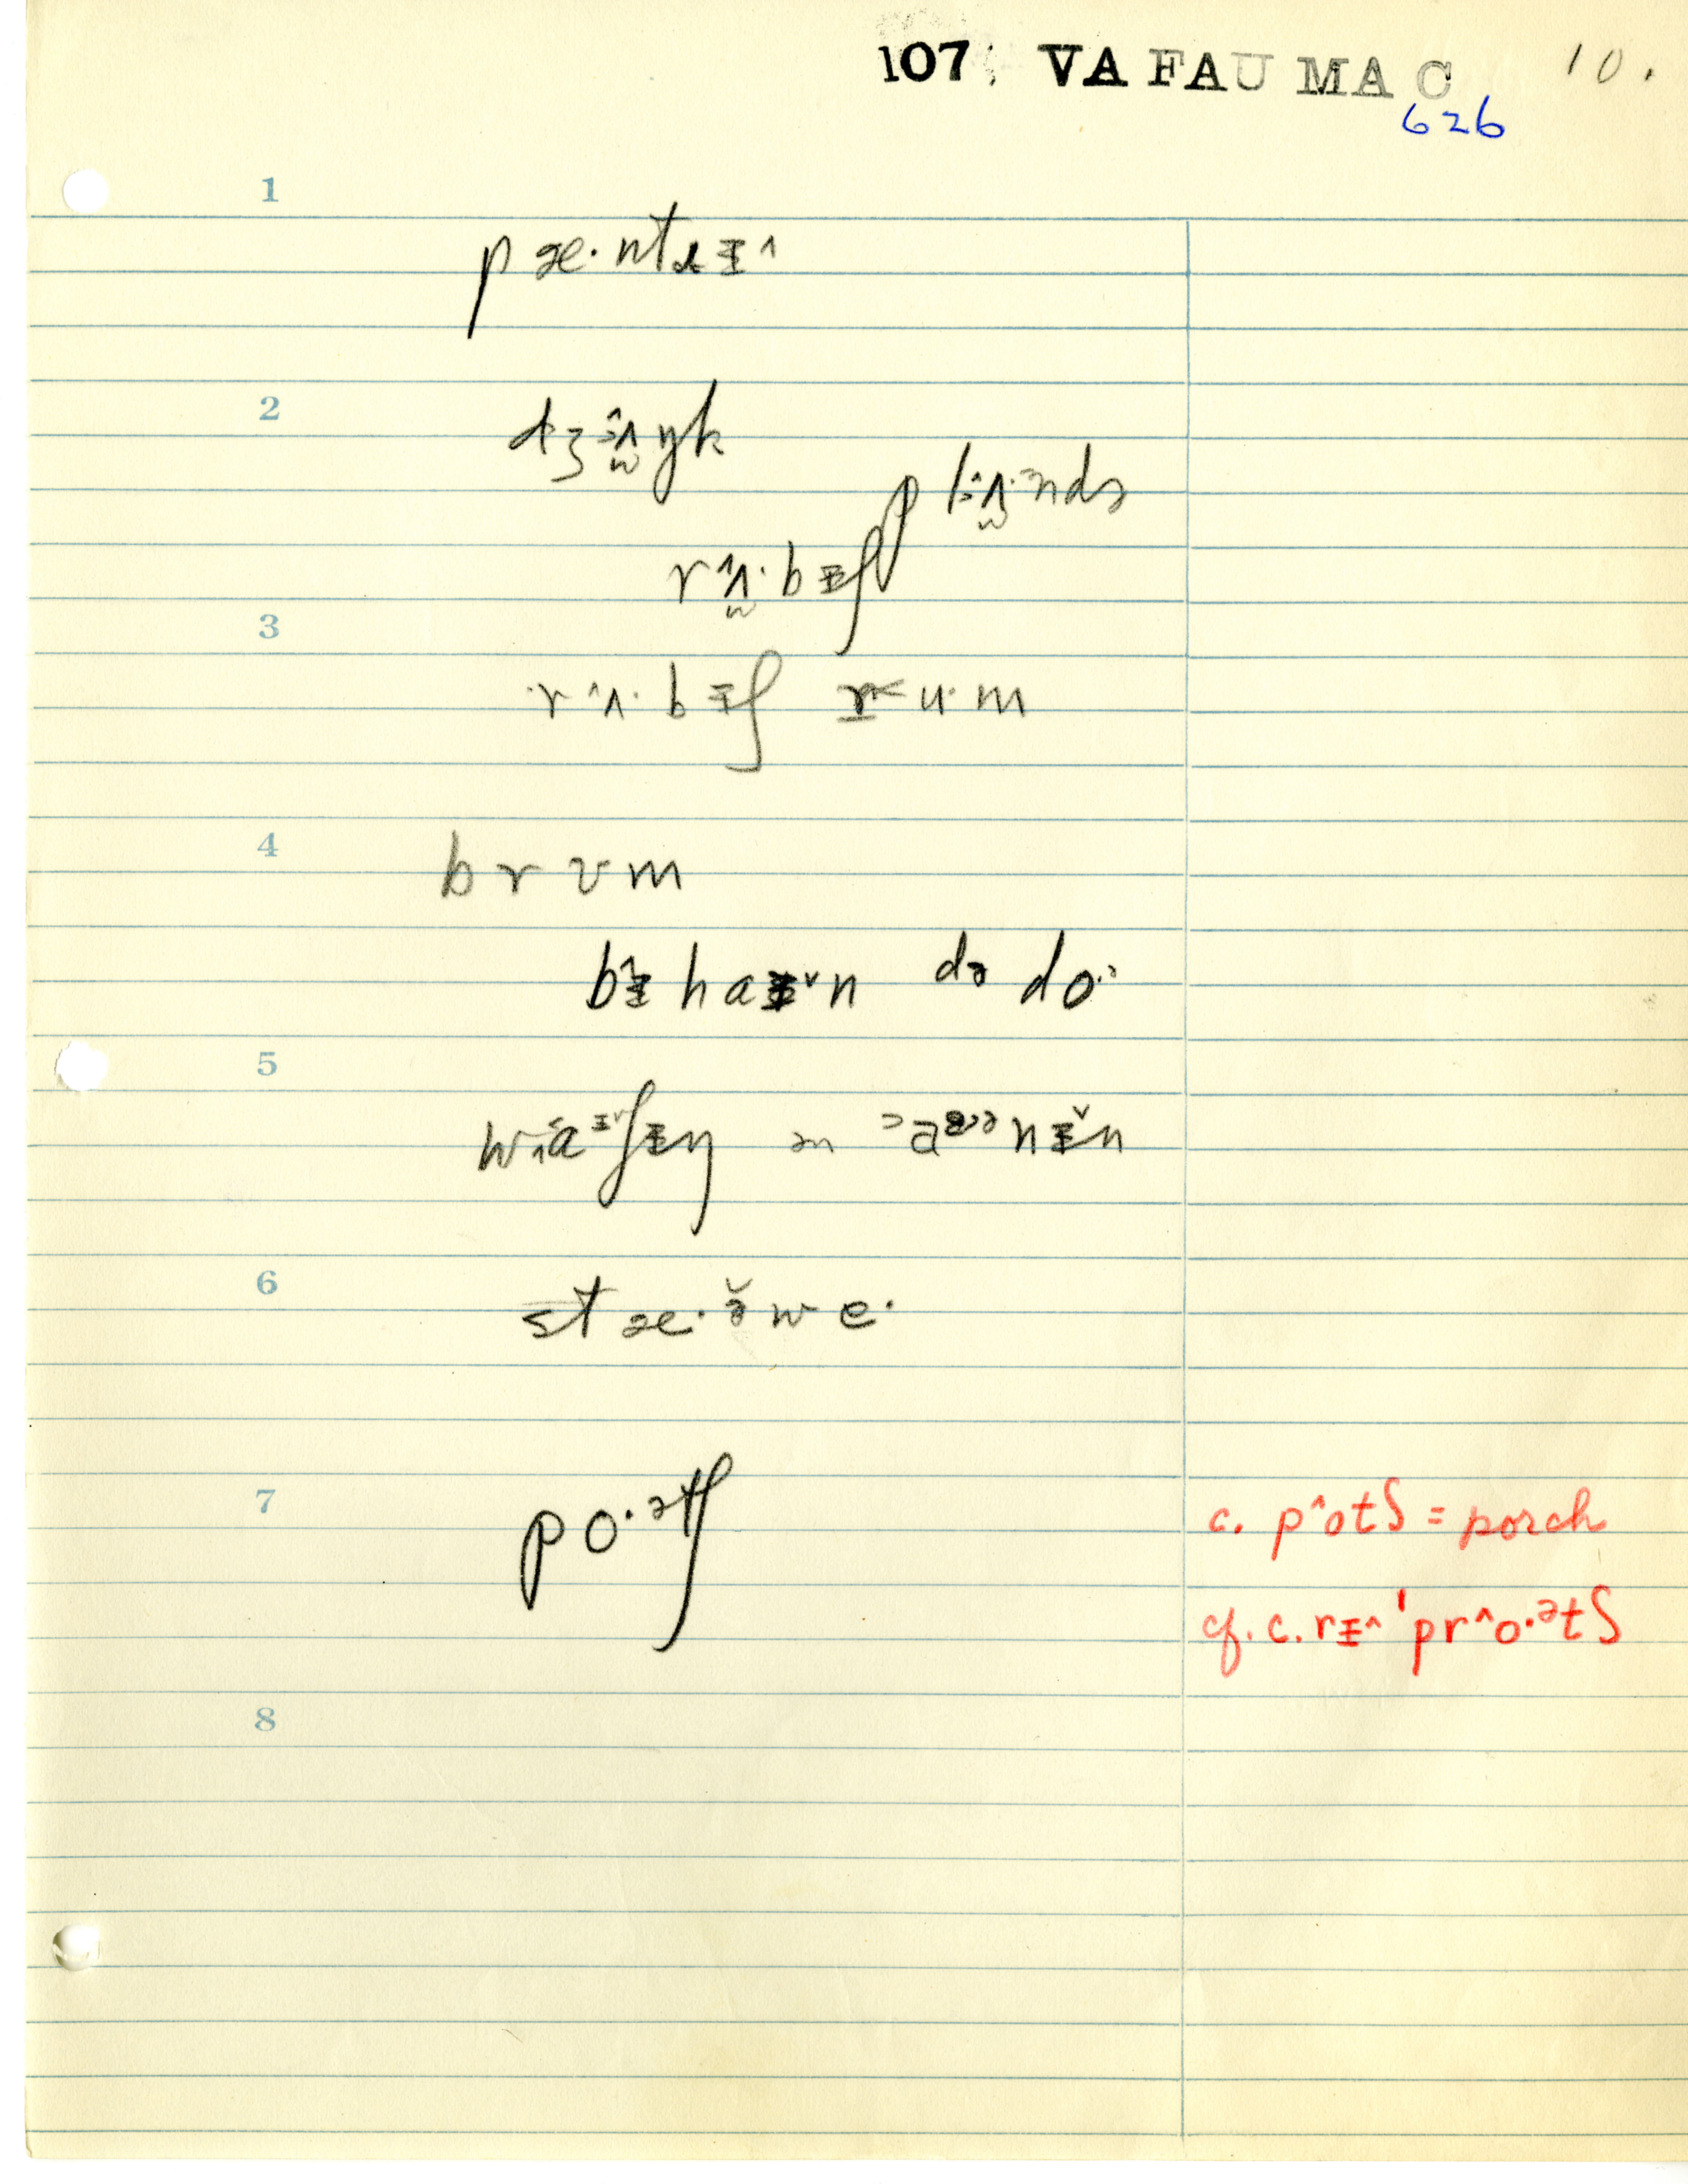 107: VA FAU MAC 10.
626
1
pæ·ntɪ^
2
dʒʌŋk
rʌ·bɪʃ plʌ·ndə
3
rʌ·bɪʃ r<u·m
4
brʊm
bɪ haɪˇn də do·ə
5
wɑɪʃɪŋ ən aənɪˇn
6
stæ·ə̌we·
7
po·ətʃ c. p^otʃ = porch
cf. c. rɪ^ 'pr^o·ətʃ
8